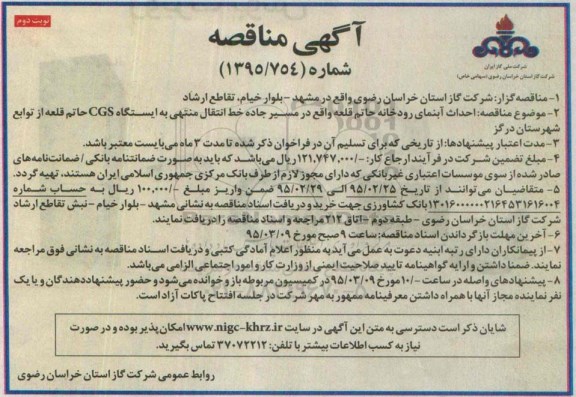 نوبت دوم
آگهی مناقصه
شماره (۱۳۹۵/۷۵۴)
شرکت ملی گاز ایران
شرکت گاز استان خراسان رضوی (سهامی خاص)
۱- مناقصه گزار: شرکت گاز استان خراسان رضوی واقع در مشهد - بلوار خیام، تقاطع ارشاد
۲- موضوع مناقصه: احداث آبنمای رودخانه حاتم قلعه واقع در مسیر جاده خط انتقال منتهی به ایستگاه CGS حاتم قلعه از توابع
شهرستان درگز
۳- مدت اعتبار پیشنهادها: از تاریخی که برای تسلیم آن در فراخوان ذکر شده تا مدت ۳ ماه می بایست معتبر باشد.
۴- مبلغ تضمین شرکت در فرآیند ارجاع کار: ۱۲۱,۷۴۷,۰۰۰/- ریال می باشد که باید به صورت ضمانتنامه بانکی / ضمانت نامه های
صادر شده از سوی موسسات اعتباری غیربانکی که دارای مجوز لازم از طرف بانک مرکزی جمهوری اسلامی ایران هستند، تهیه گردد.
۵- متقاضیان می توانند از تاریخ ۹۵/۰۲/۲۵ الی ۹۵/۰۲/۲۹ ضمن واریز مبلغ ۱۰۰,۰۰۰/- ریال به حساب شماره
بانک کشاورزی جهت خرید و دریافت اسناد مناقصه به نشانی مشهد - بلوار خیام - نبش تقاطع ارشاد
شرکت گاز استان خراسان رضوی - طبقه دوم - اتاق ۲۱۲ مراجعه و اسناد مناقصه را دریافت نمایند.
۶- آخرین مهلت بازگرداندن اسناد مناقصه: ساعت ۹ صبح مورخ ۹۵/۰۳/۰۹
۷- از پیمانکاران دارای رتبه ابنیه دعوت به عمل می آید به منظور اعلام آمادگی کتبی و دریافت اسناد مناقصه به نشانی فوق مراجعه
نمایند. ضمنا داشتن و ارایه گواهینامه تایید صلاحیت ایمنی از وزارت کار و امور اجتماعی الزامی می باشد.
۸- پیشنهادهای واصله در ساعت ۱۰/۰۰ مورخ ۹۵/۰۳/۰۹ در کمیسیون مربوطه باز و خوانده می شود و حضور پیشنهاددهندگان و یا یک
نفر نماینده مجاز آنها با همراه داشتن معرفینامه ممهور به مهر شرکت در جلسه افتتاح پاکات آزاد است.
شایان ذکر است دسترسی به متن این آگهی در سایت www.nigc-khrz.ir امکان پذیر بوده و در صورت
نیاز به کسب اطلاعات بیشتر با تلفن: ۳۷۰۷۲۲۱۲ تماس بگیرید.
روابط عمومی شرکت گاز استان خراسان رضوی